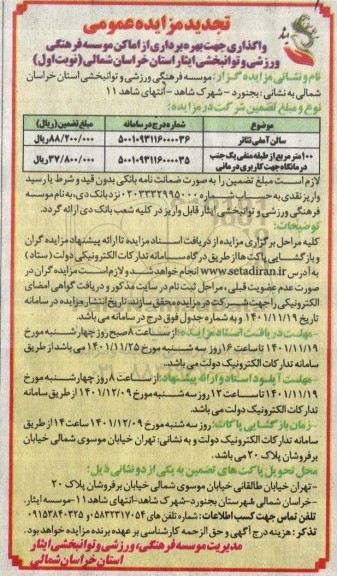 تجدید مزایده عمومی
واگذاری جهت بهره برداری از اماکن موسسه فرهنگی
ورزشی و توانبخشی ایثار استان خراسان شمالی (نوبت اول)
نام و نشانی مزایده گزار: موسسه فرهنگی ورزشی و توانبخشی استان خراسان
شمالی به نشانی: بجنورد - شهرک شاهد - انتهای شاهد ۱۱
نوع و مبلغ تضمین شرکت در مزایده:
موضوع شماره درج در سامانه مبلغ تضمین (ریال)
سالن آمفی تئاتر ۵۰۰۱۰۹۳۱۱۶۰۰۰۰۳۶ ۸۸/۲۰۰/۰۰۰ ریال
۱۰۰ متر مربع از طبقه منفی یک جنب درمانگاه جهت کاربری درمانی ۵۰۰۱۰۹۳۱۱۶۰۰۰۰۳۵ ۳۷/۸۰۰/۰۰۰ ریال
لازم است مبلغ تضمین را به صورت ضمانت نامه بانکی بدون قید و شرط یا رسید
واریز نقدی به حساب شماره ۰۲۰۳۳۳۲۹۹۵۰۰۰ نزد بانک دی، به نام موسسه
فرهنگی ورزشی و توانبخشی ایثار قابل واریز در کلیه شعب بانک دی ارائه گردد.
توضیحات:
کلیه مراحل برگزاری مزایده از دریافت اسناد مزایده تا ارائه پیشنهاد مزایده گران
و بازگشایی پاکت ها از طریق درگاه سامانه تدارکات الکترونیکی دولت (ستاد)
به آدرس www.setadiran.ir انجام خواهد شد و لازم است مزایده گران در
صورت عدم عضویت قبلی، مراحل ثبت نام در سایت مذکور و دریافت گواهی امضای
الکترونیکی را جهت شرکت در مزایده محقق سازند. تاریخ انتشار مزایده در سامانه
تاریخ ۱۴۰۱/۱۱/۱۹ و به شماره جدول فوق درج در سامانه می باشد.
-مهلت دریافت اسناد مزایده: از ساعت ۸ صبح روز چهارشنبه مورخ
۱۴۰۱/۱۱/۱۹ تا ساعت ۱۶ روز سه شنبه مورخ ۱۴۰۱/۱۱/۲۵ می باشد از طریق
سامانه تدارکات الکترونیک دولت می باشد.
-مهلت آپلود اسناد و ارائه پیشنهاد: از ساعت ۸ روز چهارشنبه مورخ
۱۴۰۱/۱۱/۱۹ تا ساعت ۱۲ روز سه شنبه مورخ ۱۴۰۱/۱۲/۰۹ از طریق سامانه
تدارکات الکترونیک دولت می باشد.
-زمان بازگشایی پاکات: روز سه شنبه مورخ ۱۴۰۱/۱۲/۰۹ ساعت ۱۴ از طریق
سامانه تدارکات الکترونیک دولت و به نشانی: تهران خیابان موسوی شمالی خیابان
برفروشان پلاک ۲۰ می باشد.
محل تحویل پاکت های تضمین به یکی از دو نشانی ذیل:
- تهران خیابان طالقانی خیابان موسوی شمالی خیابان برفروشان پلاک ۲۰
- خراسان شمالی شهرستان بجنورد-شهرک شاهد-انتهای شاهد ۱۱- موسسه ایثار.
تلفن تماس جهت کسب اطلاعات: شماره تلفن های ۰۵۸۳۲۳۱۷۰۵۴ و ۰۹۱۵۳۸۴۰۳۲۵
تذکر: هزینه درج آگهی و حق الزحمه کارشناسی بر عهده برنده مزایده خواهد بود.
مدیریت موسسه فرهنگی، ورزشی و توانبخشی ایثار
استان خراسان شمالی